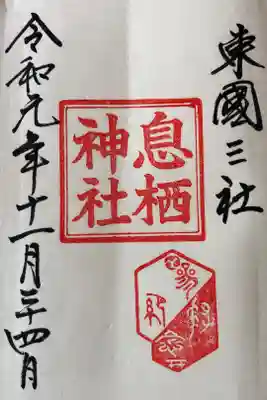 東國三社
息栖
神社
令和元年十一月二十四日